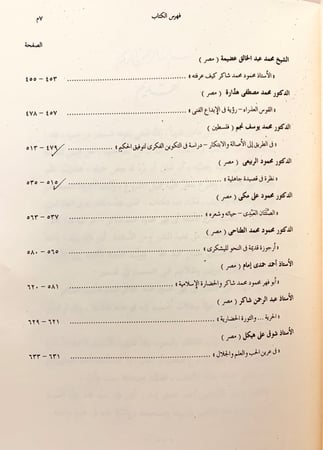 فهرس الكتاب ٧م
الصفحة
الشيخ محمد عبد الخالق عضيمة ( مصر )
« الأستاذ محمود محمد شاكر كيف عرفته » ........ ٤٥٣ – ٤٥٥
الدكتور محمد مصطفى هدارة ( مصر )
« القوس العذراء – رؤية في الإبداع الفني » ........ ٤٥٧ – ٤٧٨
الدكتور محمد يوسف نجم ( فلسطين )
« في الطريق إلى الأصالة والابتكار – دراسة في التكوين الفكرى لتوفيق الحكيم » ........ ٤٧٩ – ٥١٣
الدكتور محمود الربيعى ( مصر )
« نظرة في قصيدة جاهلية » ........ ٥١٥ – ٥٣٥
الدكتور محمود على مكى ( مصر )
« الصلتان العبدى – حياته وشعره » ........ ٥٣٧ – ٥٦٣
الدكتور محمود محمد الطناحى ( مصر )
« أرجوزة قديمة في النحو لليشكرى » ........ ٥٦٥ – ٥٨٠
الأستاذ أحمد حمدى إمام ( مصر )
« أبو فهر محمود محمد شاكر والحضارة الإسلامية » ........ ٥٨١ – ٦٢٠
الأستاذ عبد الرحمن شاكر ( مصر )
« الحرية ... والثورة الحضارية » ........ ٦٢١ – ٦٢٩
الأستاذ شوقى على هيكل ( مصر )
« في عرين الحب والعلم والجلال » ........ ٦٣١ – ٦٣٣